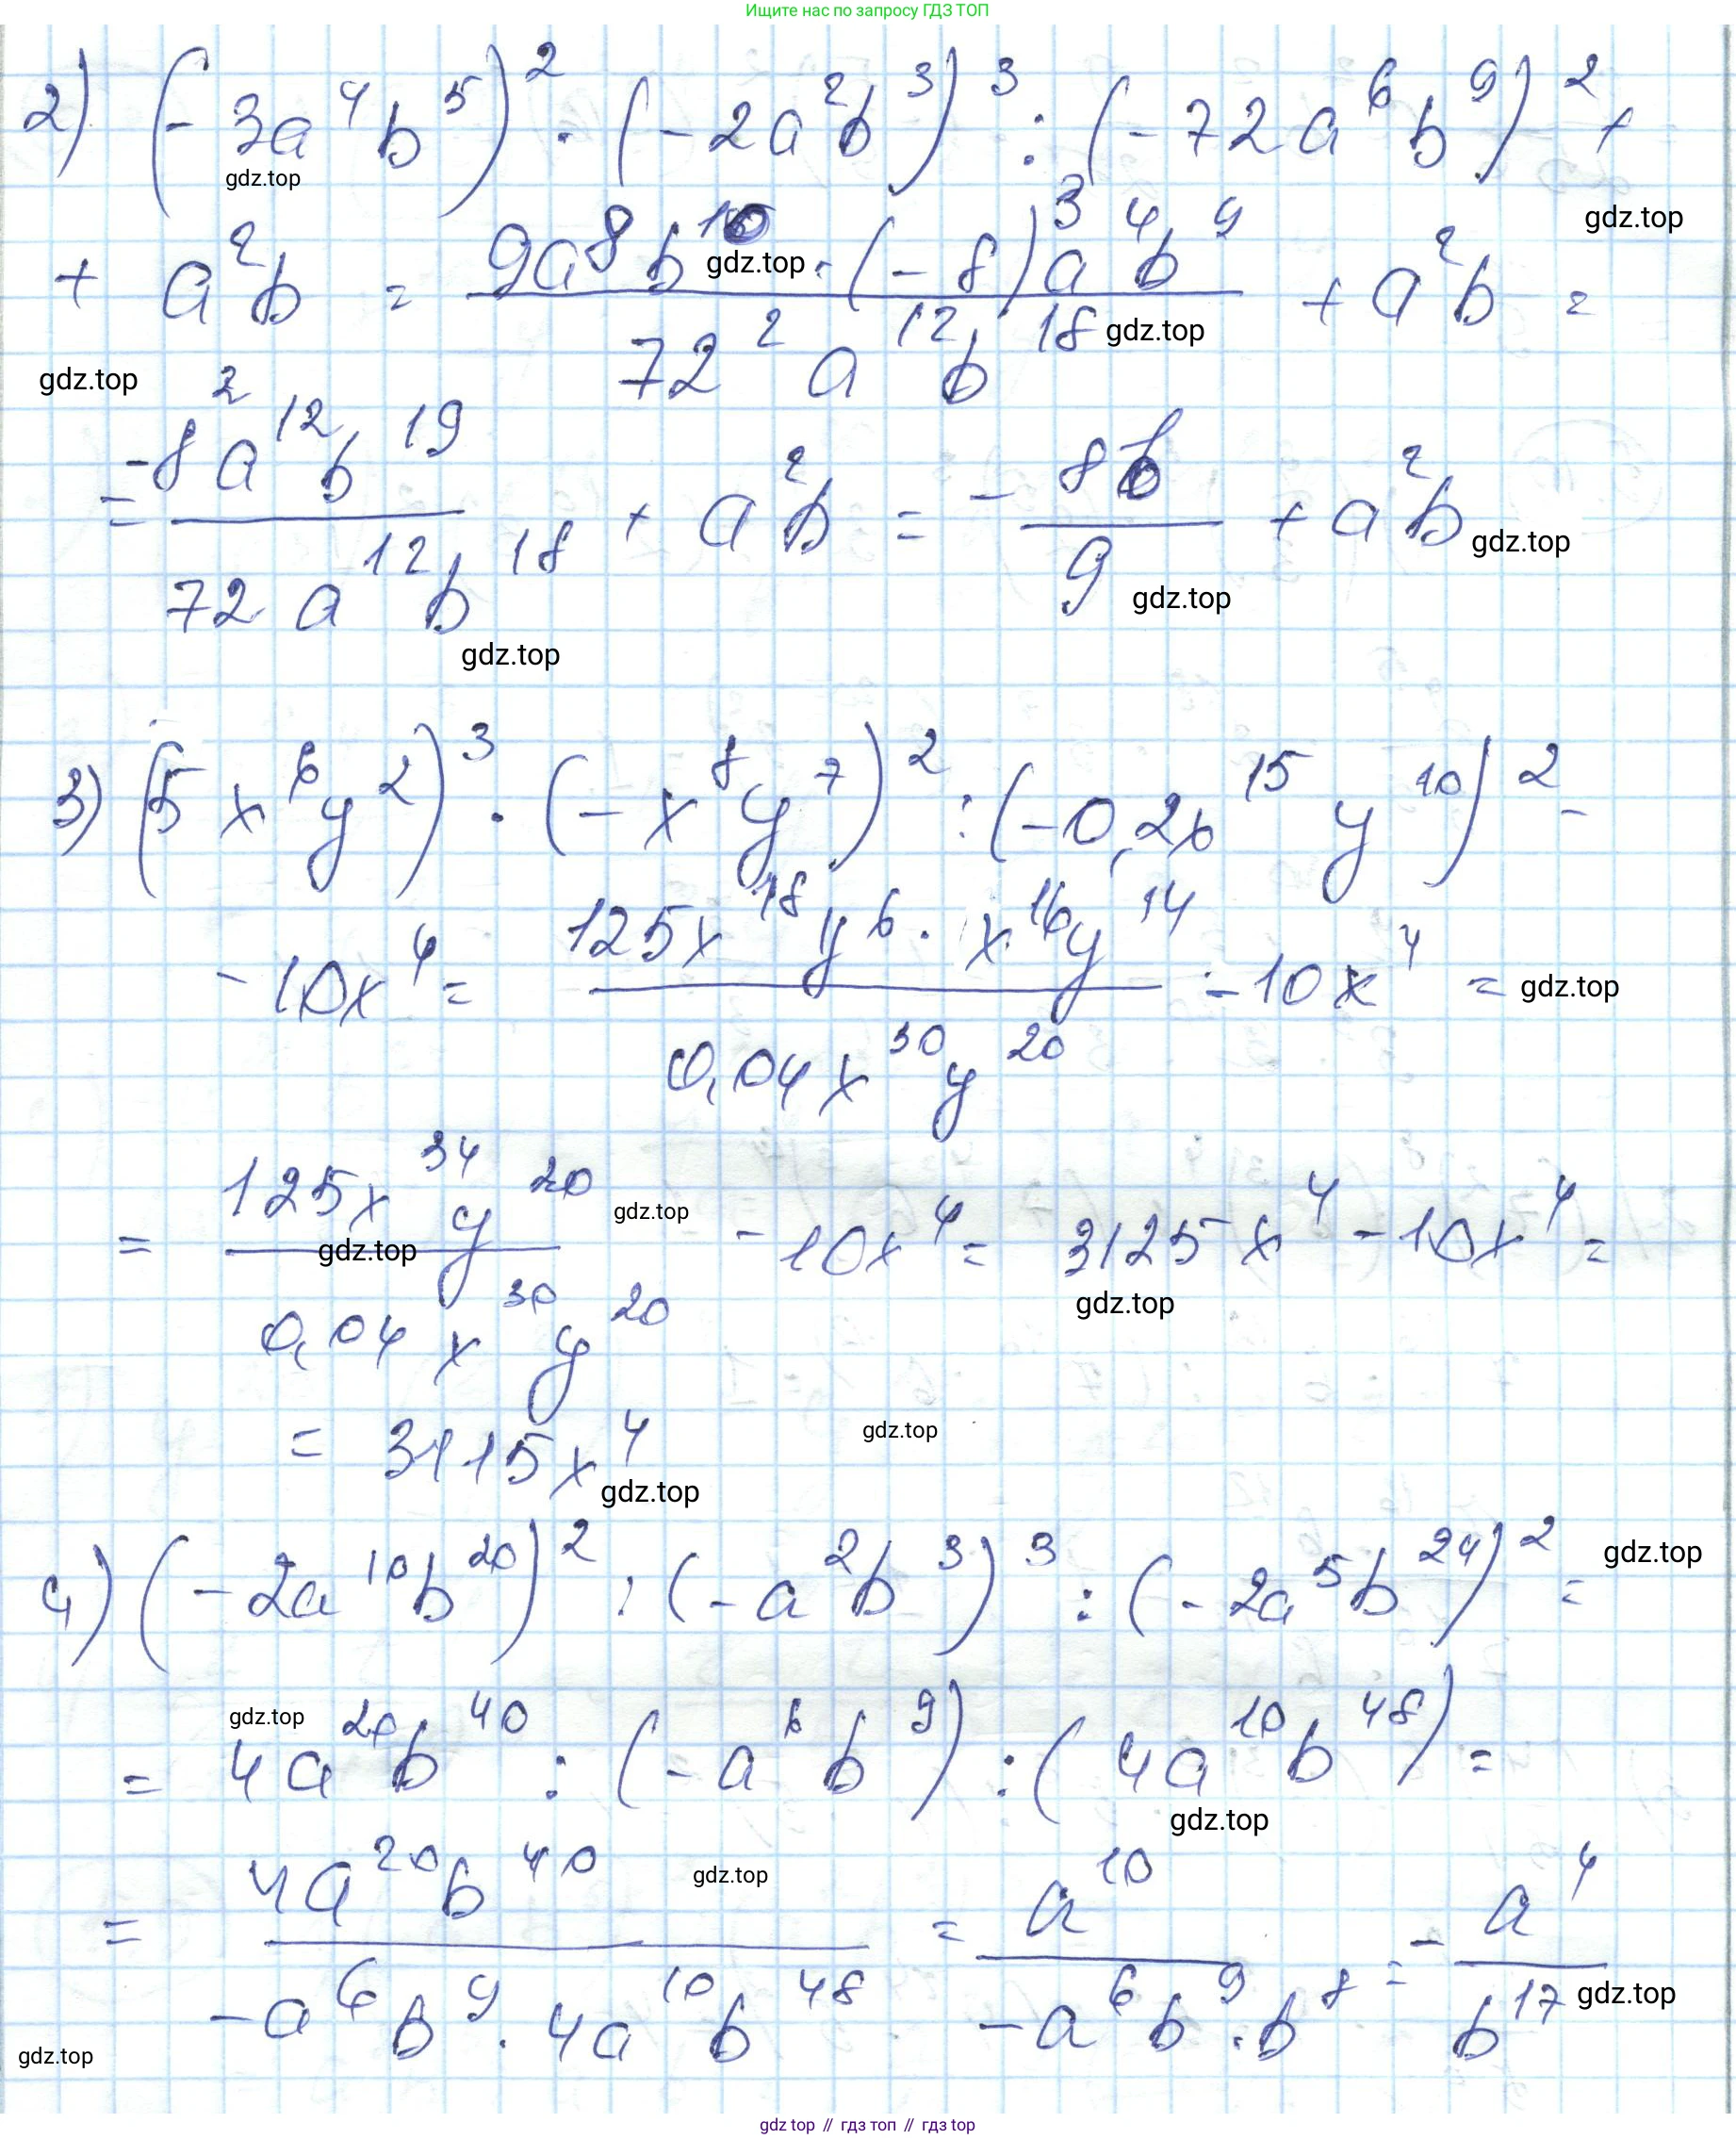 Ищите нас по запросу ГДЗ ТОП
2) (-3a⁴b⁵)² · (-2a²b³)³ : (-72a⁶b⁹)² +
gdz.top
gdz.top
+ a²b = 9a⁸b¹⁰ · (-8)³a⁴b⁹ / 72²a¹²b¹⁸ + a²b =
gdz.top
gdz.top
gdz.top
= -8²a¹²b¹⁹ / 72a¹²b¹⁸ + a²b = - 8b / 9 + a²b
gdz.top
gdz.top
gdz.top
3) (5x⁶y²)³ · (-x⁸y⁷)² : (-0,2x¹⁵y¹⁰)² -
- 10x⁴ = 125x¹⁸y⁶ · x¹⁶y¹⁴ / 0,04x³⁰y²⁰ - 10x⁴ =
gdz.top
= 125x³⁴y²⁰ / 0,04x³⁰y²⁰ - 10x⁴ = 3125x⁴ - 10x⁴ =
gdz.top
gdz.top
gdz.top
= 3115x⁴
gdz.top
gdz.top
4) (-2a¹⁰b²⁰)² : (-a²b³)³ : (-2a⁵b²⁴)² =
gdz.top
= 4a²⁰b⁴⁰ : (-a⁶b⁹) : (4a¹⁰b⁴⁸) =
gdz.top
gdz.top
= 4a²⁰b⁴⁰ / -a⁶b⁹ · 4a¹⁰b⁴⁸ = a¹⁰ / -a⁶b⁹ · b⁸ = - a⁴ / b¹⁷
gdz.top
gdz.top
gdz.top
gdz top // гдз топ // гдз top